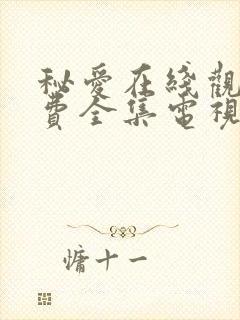 秘愛在綫觀
費全集電視
慵十一